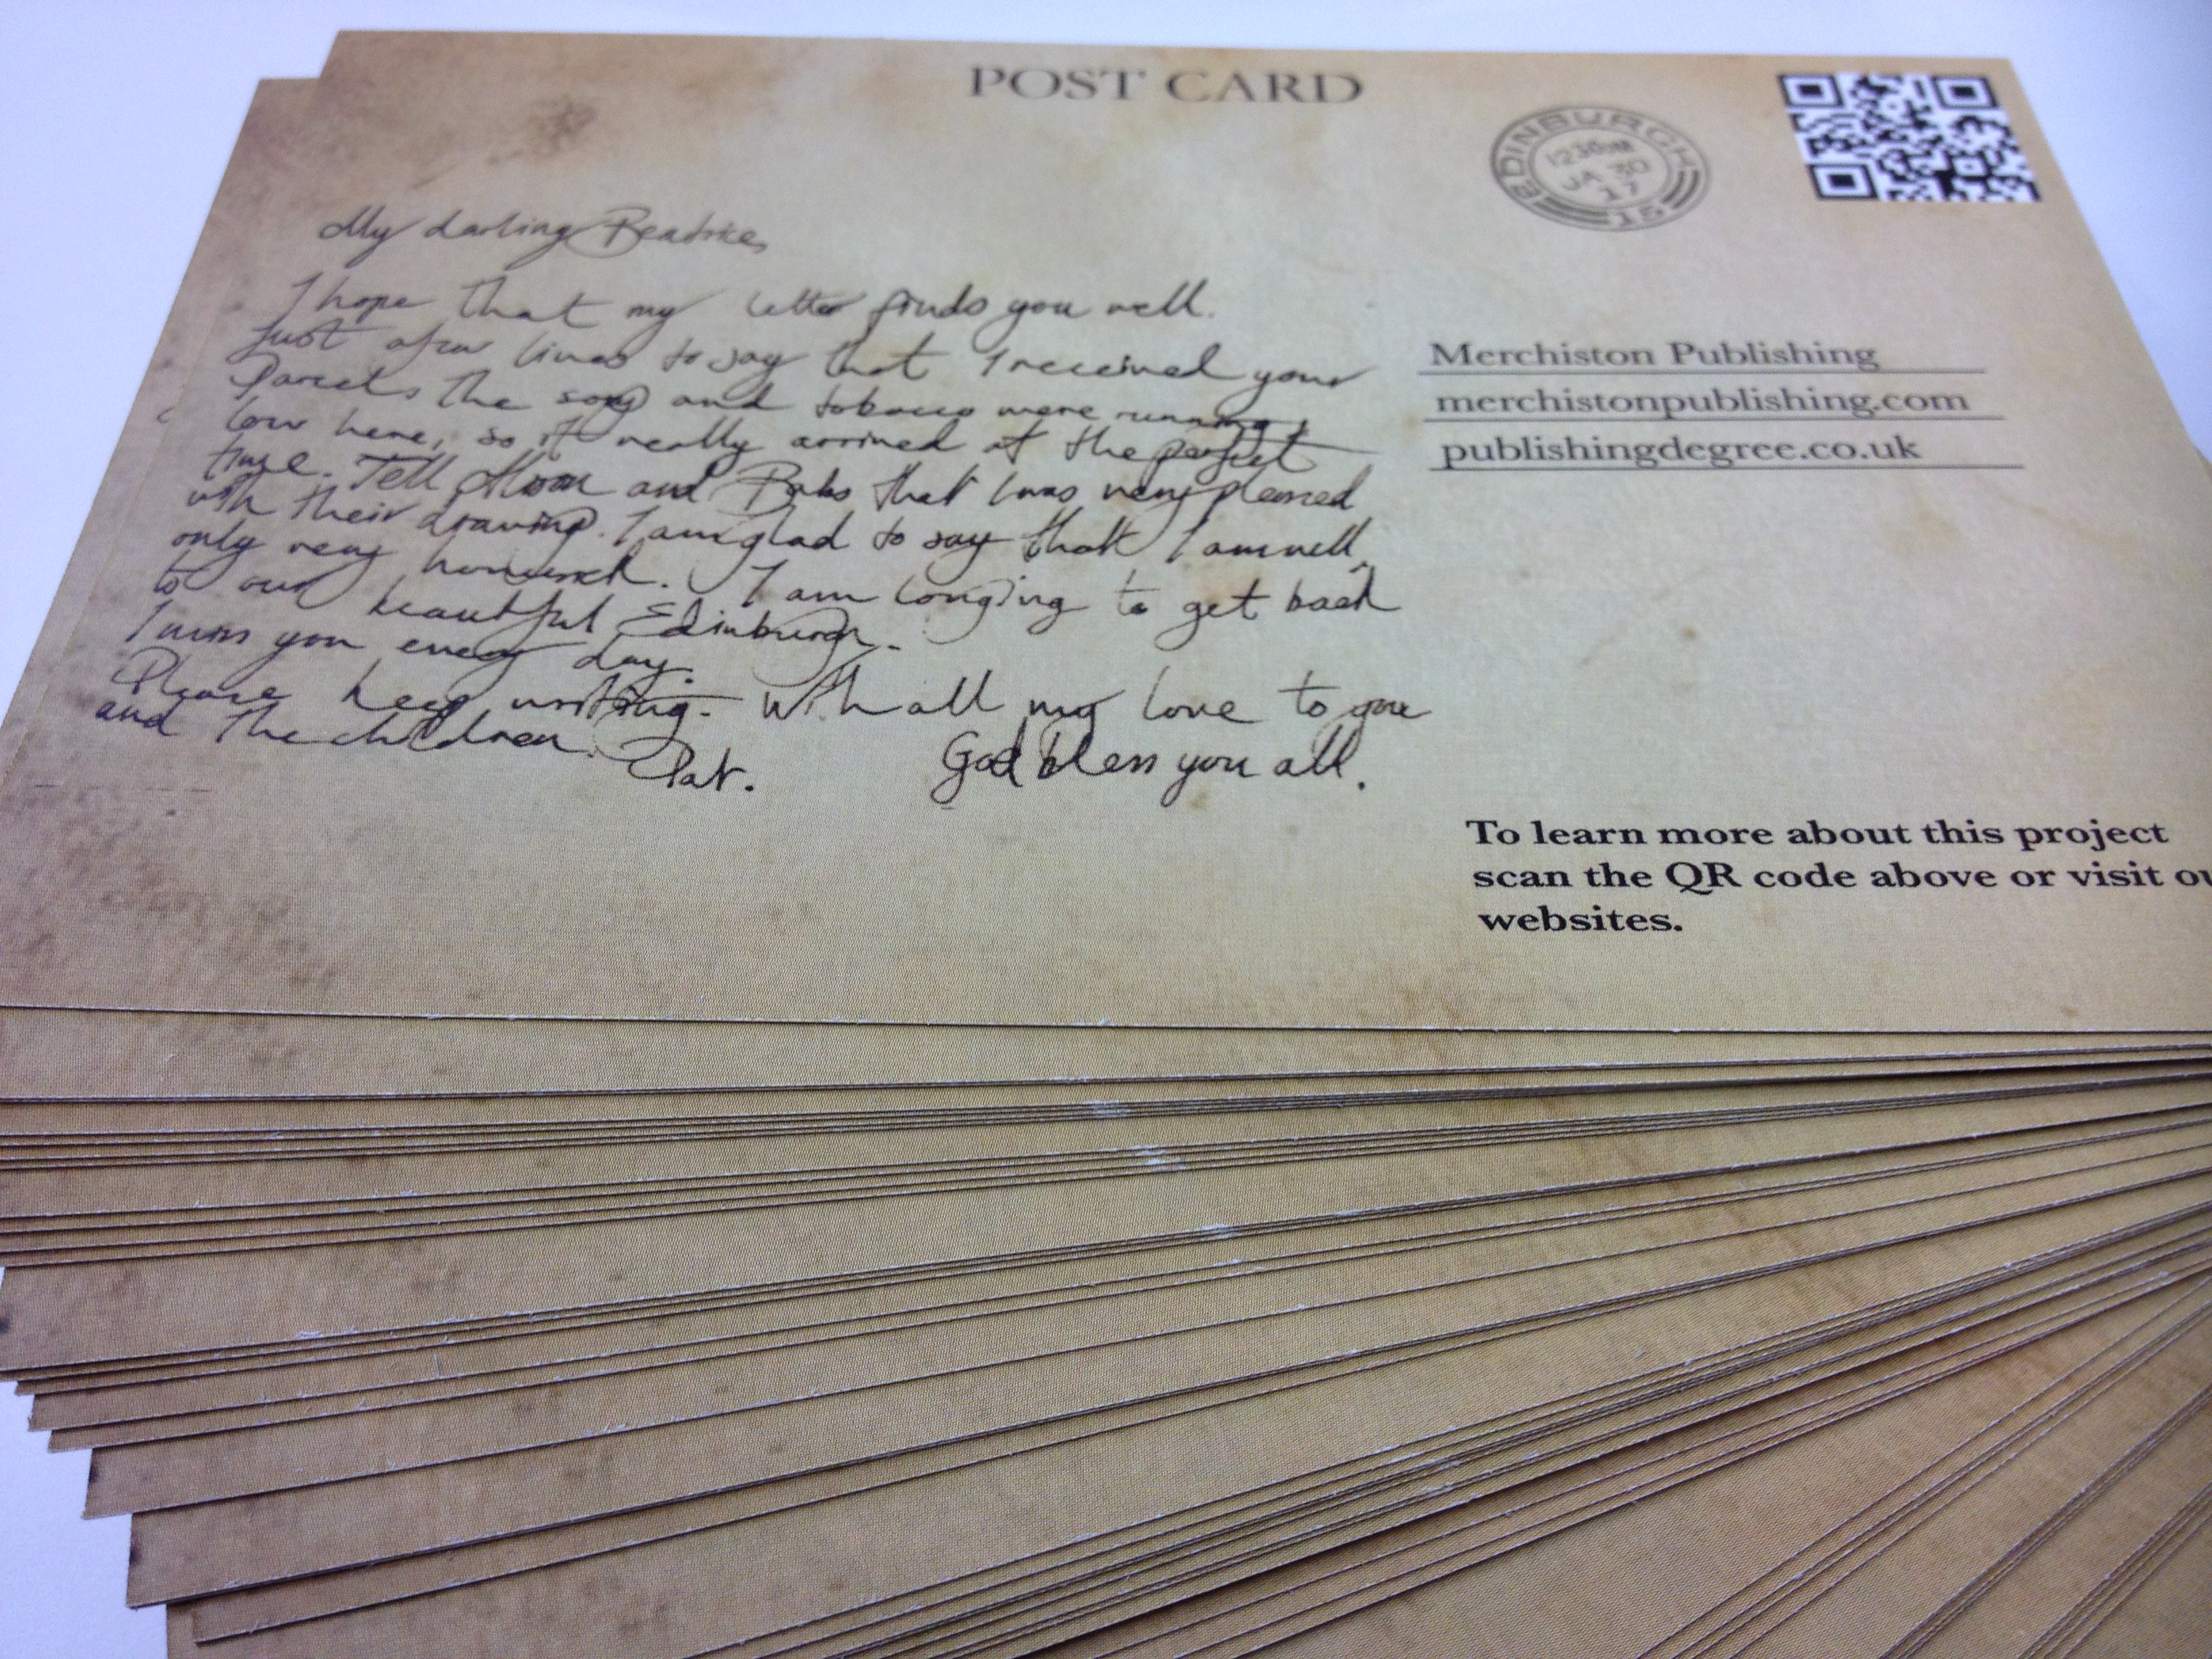 POST CARD
EDINBURGH
1230PM
JA 30
17
15
My darling Beatrice,
I hope that my letter finds you well.
Just a few lines to say that I received your
Parcels the soap and tobacco were running
low here, so it really arrived at the perfect
time. Tell Mom and Babs that I was very pleased
with their drawing. I am glad to say that I am well,
only very homesick. I am longing to get back
to our beautiful Edinburgh.
I miss you every day.
Please keep writing. With all my love to you
and the children.
Pat. God bless you all.
Merchiston Publishing
merchistonpublishing.com
publishingdegree.co.uk
To learn more about this project
scan the QR code above or visit ou
websites.